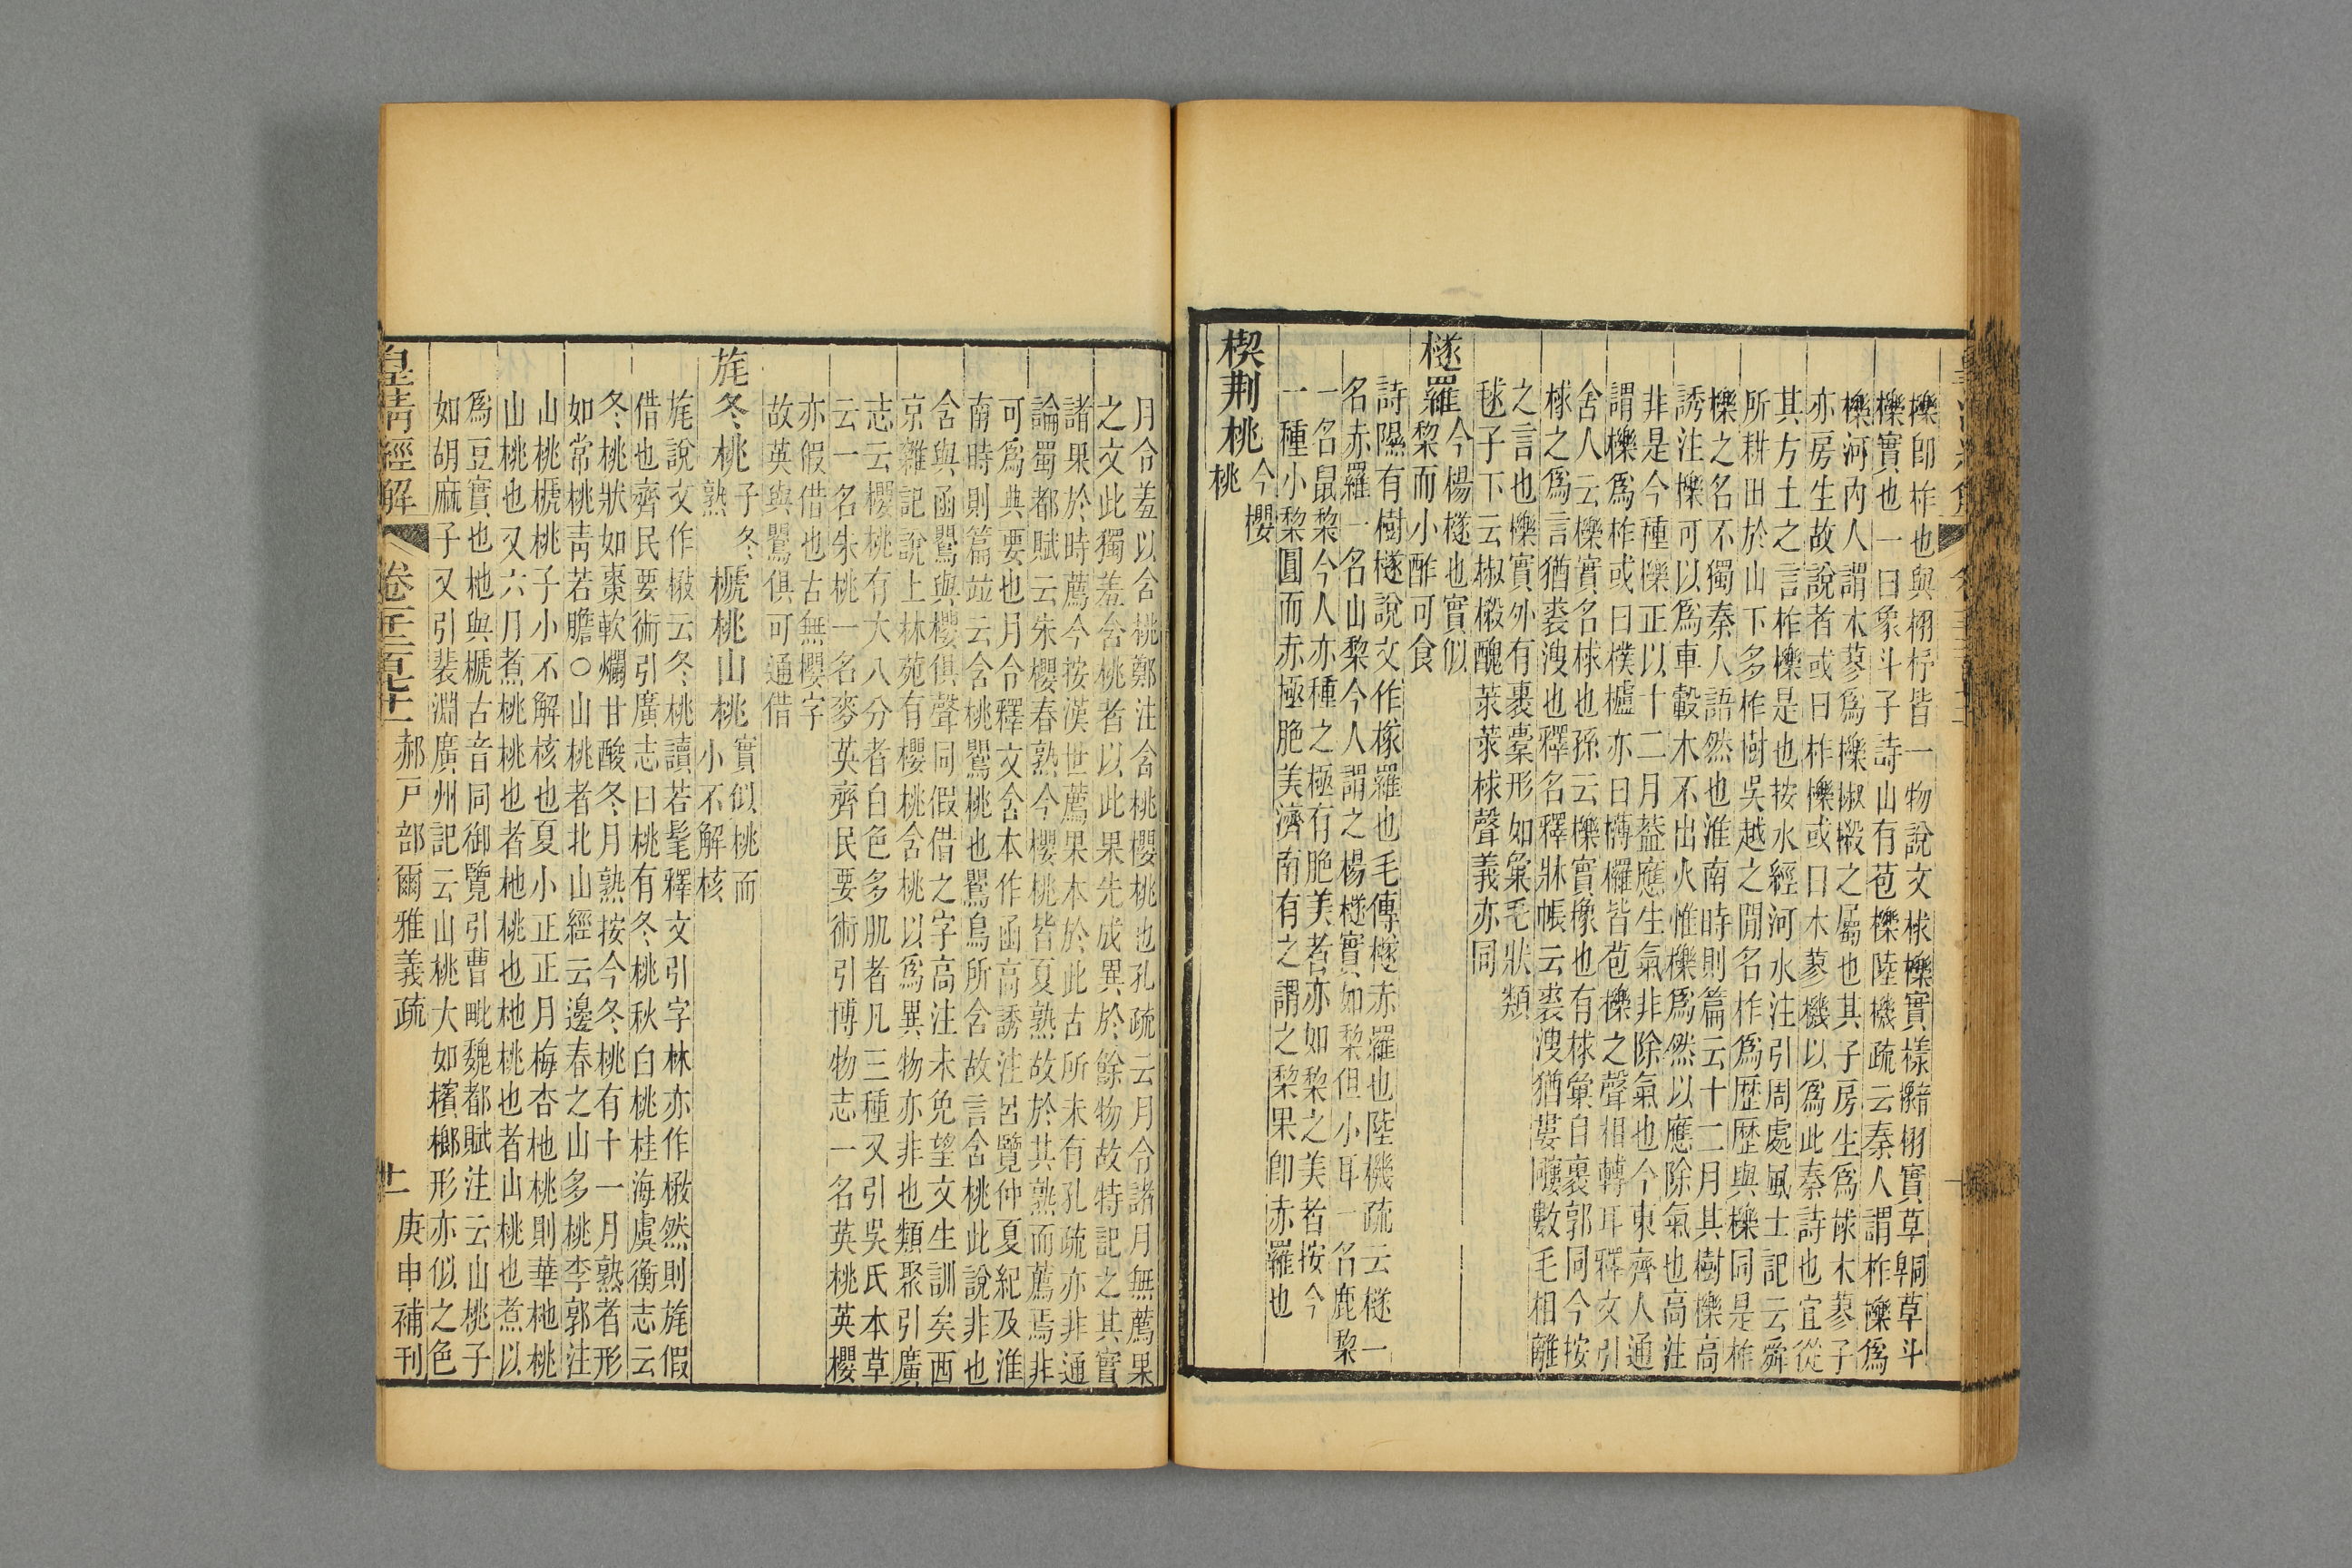 櫟卽柞也與栩杼皆一物說文梂櫟實樣䍺栩實草草斗
櫟實也一曰象斗子詩山有苞櫟陸機疏云秦人謂柞櫟爲
櫟河內人謂木蓼爲櫟椒樧之屬也其子房生爲梂木蓼子
亦房生故說者或曰柞櫟或曰木蓼機以爲此秦詩也宜從
其方土之言柞櫟是也按水經河水注引周處風土記云舜
所耕田於山下多柞樹吳越之閒名柞爲歷歷與櫟同是柞
櫟之名不獨秦人語然也淮南時則篇云十二月其樹櫟高
誘注櫟可以爲車轂木不出火惟櫟爲然以應除氣也高注
非是今種櫟正以十二月葢應生氣非除氣也今東齊人通
謂櫟爲柞或曰樸樝亦曰槫欏皆苞櫟之聲相轉耳釋文引
舍人云櫟實名梂也孫云櫟實橡也有梂彙自裹郭同今按
梂之爲言猶裘溲也釋名釋牀帳云裘溲猶婁數毛相離
之言也櫟實外有裹橐形如彙毛狀類
毬子下云椒樧醜莍莍梂聲義亦同
檖羅今楊檖也實似
棃而小酢可食
詩隰有樹檖說文作㯌羅也毛傳檖赤羅也陸機疏云檖一
名赤羅一名山棃今人謂之楊檖實如棃但小耳一名鹿棃
一名鼠棃今人亦種之極有脃美者亦如棃之美者按今
一種小棃圓而赤極脃美濟南有之謂之棃果卽赤羅也
楔荆桃今櫻
桃
月令羞以含桃鄭注含桃櫻桃也孔疏云月令諸月無薦果
之文此獨羞含桃者以此果先成異於餘物故特記之其實
諸果於時薦今按漢世薦果本於此古所未有孔疏亦非通
論蜀都賦云朱櫻春熟今櫻桃皆夏熟故於其熟而薦焉非
可爲典要也月令釋文含本作函高誘注呂覽仲夏紀及淮
南時則篇竝云含桃鸎桃也鸎鳥所含故言含桃此說非也
含與函鸎與櫻俱聲同假借之字高注未免望文生訓矣西
京雜記說上林苑有櫻桃含桃以爲異物亦非也類聚引廣
志云櫻桃有大八分者白色多肌者凡三種又引吳氏本草
云一名朱桃一名麥英齊民要術引博物志一名英桃英櫻
亦假借也古無櫻字
故英與鸎俱可通借
旄冬桃子冬
熟榹桃山桃實似桃而
小不解核
旄說文作楸云冬桃讀若髦釋文引字林亦作楸然則旄假
借也齊民要術引廣志曰桃有冬桃秋白桃桂海虞衡志云
冬桃狀如棗軟爛甘酸冬月熟按今冬桃有十一月熟者形
如常桃靑若膽○山桃者北山經云邊春之山多桃李郭注
山桃榹桃子小不解核也夏小正正月梅杏杝桃則華杝桃
山桃也又六月煮桃桃也者杝桃也杝桃也者山桃也煮以
爲豆實也杝與榹古音同御覽引曹毗魏都賦注云山桃子
如胡麻子又引裴淵廣州記云山桃大如檳榔形亦似之色
皇淸經解 卷二百七十一 郝戸部爾雅義疏 十一 庚申補刊